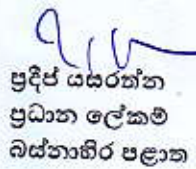 ප්‍රදීප් යසරත්න
ප්‍රධාන ලේකම්
බස්නාහිර පළාත